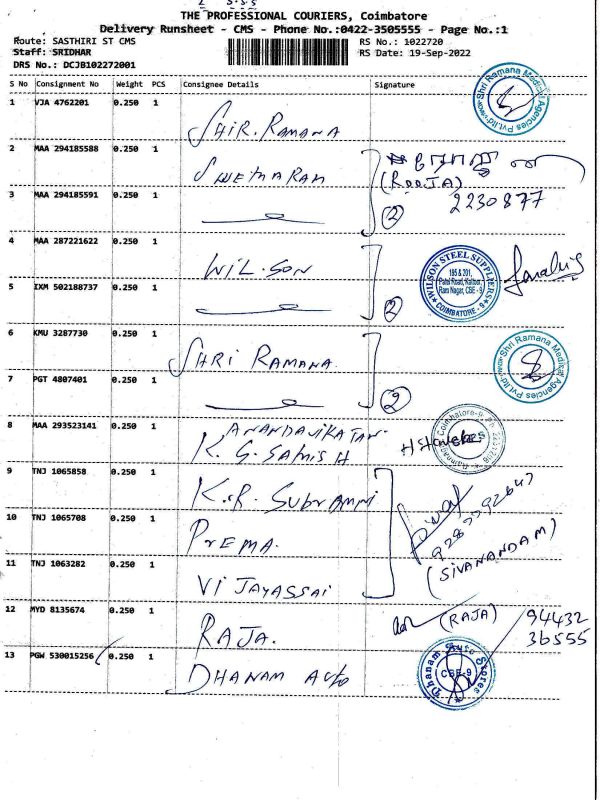 THE PROFESSIONAL COURIERS, Coimbatore
Delivery Runsheet - CMS - Phone No.:0422-3505555 - Page No.:1
Route: SASTHIRI ST CMS
RS No.: 1022720
Staff: SRIDHAR
RS Date: 19-Sep-2022
DRS No.: DCJB102272001
S No Consignment No Weight PCS Consignee Details Signature
1 VJA 4762201 0.250 1 SHIR. RAMANA
Shri Ramana Medical Agencies Pvt.ltd
2 MAA 294185588 0.250 1 SWETHA RAM
(ROOJA)
2230877
3 MAA 294185591 0.250 1
2
4 MAA 287221622 0.250 1 WIL.SON
WILSON STEEL SUPPLIERS
185 & 201,
Ram Nagar, CBE - 9
COIMBATORE - 9
5 IXM 502188737 0.250 1
2
6 KMU 3287730 0.250 1 SHRI RAMANA.
Shri Ramana Medical Agencies Pvt.ltd
7 PGT 4807401 0.250 1
2
8 MAA 293523141 0.250 1 ANANDAVIKATAN
K. G. SATHISH
Coimbatore-9
9 TNJ 1065858 0.250 1 K.R. SUBRAMNI
9287792647
10 TNJ 1065708 0.250 1 PREMA.
(SIVANANDAM)
11 TNJ 1063282 0.250 1 VIJAYASSAI
12 MYD 8135674 0.250 1 RAJA.
(RAJA)
94432
36555
13 PGW 530015256 0.250 1 DHANAM AUTO
Dhanam Auto Stores
CBE-9